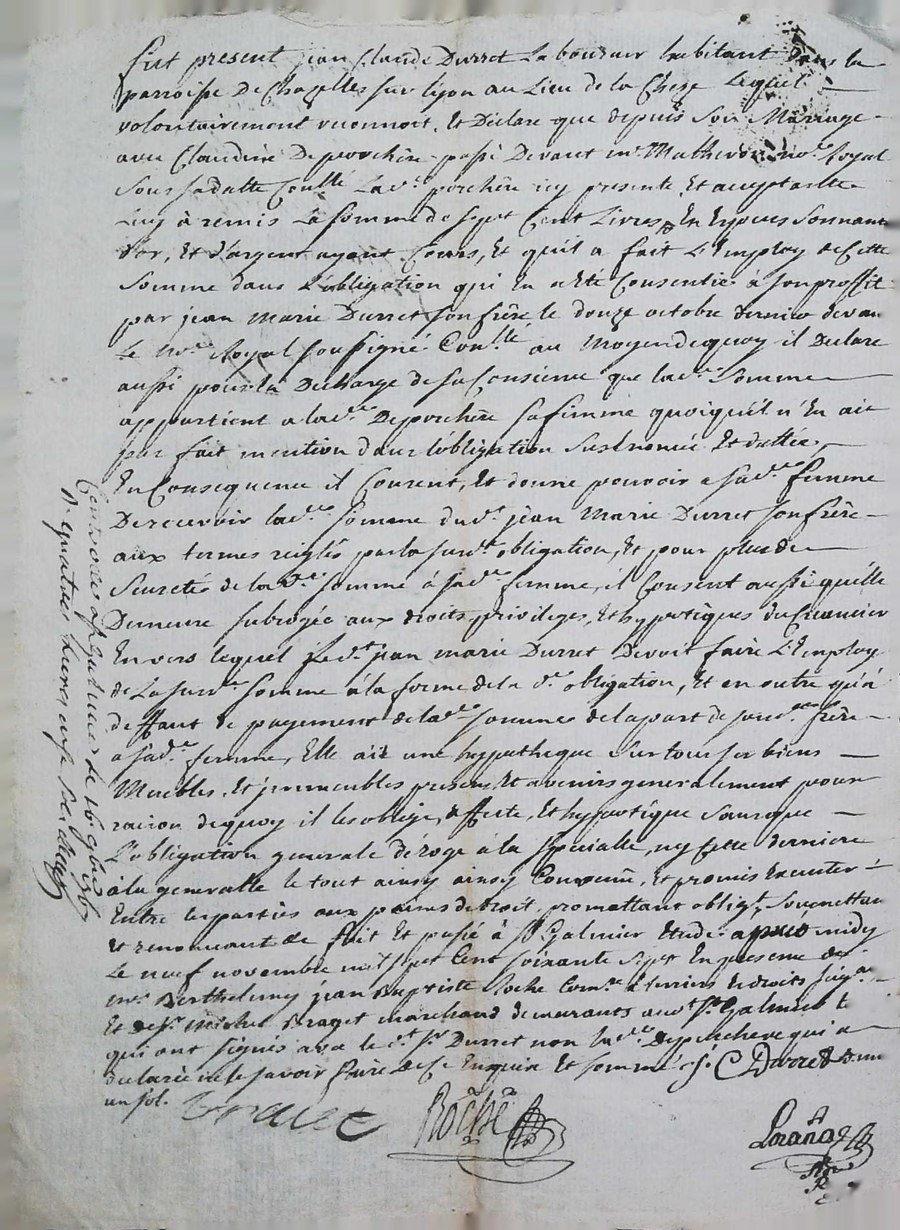 fut present jean Claude Durret Laboureur habitant dans la
parroisse De Chazelles sur lyon au Lieu de la Lequel
volontairement reconnoit, Et Déclare que depuis Son Mariage
avec Claudine Deporchère passé Devant me Matheron no.re Royal
Sous sa datte Coullé Lad.e porchère icy presente Et acceptante
luy à remis La somme de Sept Cent Livres En Especes Sonnant
d'or, Et d'argent ayant Cours, Et qu'il a fait L'Employ de Cette
Somme dans L'obligation qui En a Eté Consentie à son proffit
par jean Marie Durret son frère le douze octobre dernier devan
Le no.re Royal soussigné Con.llé au Moyen de quoy il Declare
aussi pour la Decharge de sa Consience que lad.e Somme
appartient a lad.e Deporchère sa femme quoiqu'il n'En ait
pas fait mention dans l'obligation Susénoncée Et dattée,
En Consequence il Consent, Et donne pouvoir a sad.e femme
De recevoir lad.e Somme dud.t jean Marie Durret son frère
aux termes reiglés par la susd.e obligation, Et pour plus de
Seureté de lad.e Somme à sad.e femme, il Consent aussi qu'elle
Demeure subrogée aux droits, privileges, Et hypotêques du Creancier
Envers lequel Led.t jean marie Durret Devoit faire L'Employ
de La susd.e Somme à la forme de la d.e obligation, Et en outre qu'à
deffaut de payement de lad.e somme de la part de sond.t frère
a sad.e femme, Elle ait une hypotheque sur tous ses biens
Meubles, Et jmmeubles presens, Et avenirs generalement pour
raison de quoy il les oblige, affecte, Et hypotêque Sans que
l'obligation generale déroge à la Specialle, ny Cette derniere
à la generalle le tout ainsy ainsy Convenu, Et promis Executer
Entre les parties aux peines de Droit, promettant obligt. Soumettan
Et renoncant &c fait Et passé à St. Galmier Etude après midy
Le neuf novembre mil Sept Cent Soixante Sept En presence de
me Berthelemy jean Baptiste Roche Com.re à terriers Et droits Seig.aux
Et de Sr. Michel Braget marchand demeurants aud.t St. Galmier
qui ont signés avec le d.t Sr. Durret non lad.e Deporchere qui a
declaré ne le savoir faire De Ce Enquise Et sommée C Durret
un sol.
Roche
Controllé a St. galmier le 16 9bre 1767